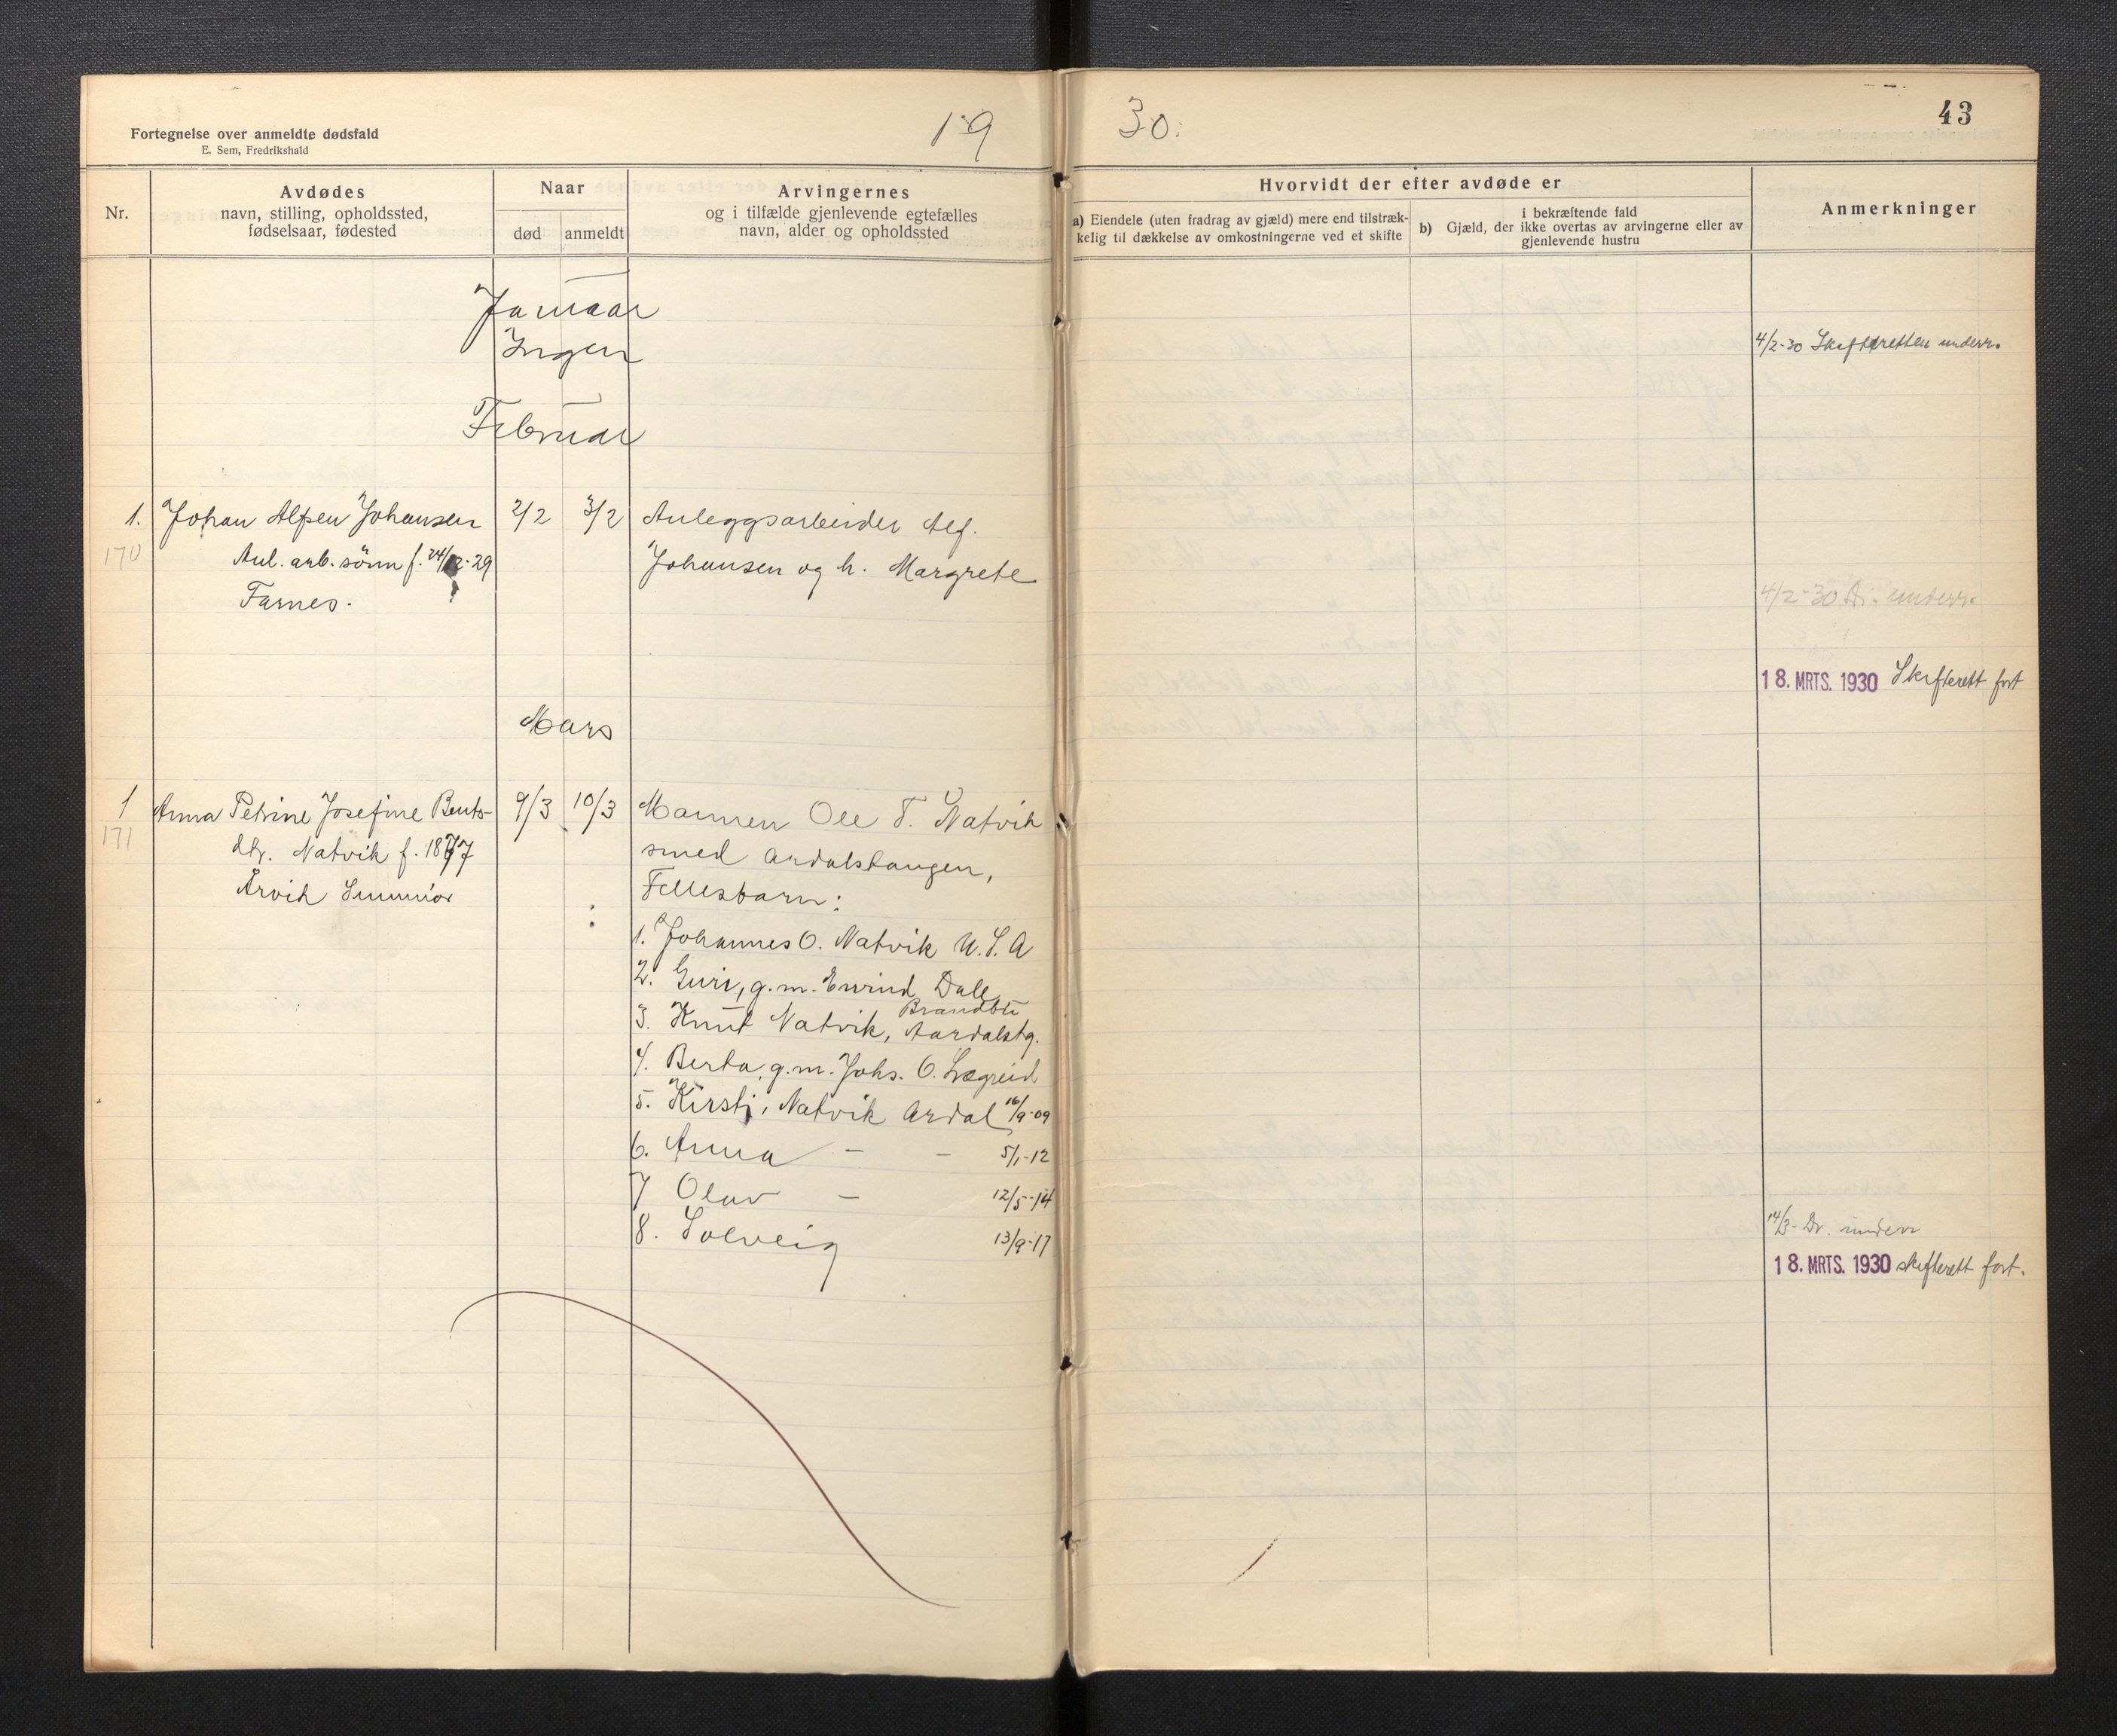 Fortegnelse over anmeldte dødsfald
E. Sem, Fredrikshald
19
30.
43
Nr.
Avdødes
navn, stilling, opholdssted,
fødselsaar, fødested
Naar
død
anmeldt
Arvingernes
og i tilfælde gjenlevende egtefælles
navn, alder og opholdssted
Hvorvidt der efter avdøde er
a) Eiendele (uten fradrag av gjæld) mere end tilstræk-
kelig til dækkelse av omkostningerne ved et skifte
i bekræftende fald
b) Gjæld, der ikke overtas av arvingerne eller av
gjenlevende hustru
Anmerkninger
Januar
Ingen
4/2-30 Skifteretten underr.
Februar
1. Johan Alfsen Johansen 2/2 3/2 Anleggsarbeider Alf.
170 Anl. arb. sønn f. 24/12-29 Johansen og h. Margrete
Farnes.
4/2-30 Dr. underr.
18. MRTS. 1930 Skifterett fort
Mars
1 Anna Petrine Josefine Bents- 9/3 10/3 Mannen Ole T. Natvik
171 dtr. Natvik f. 1877 smed Ardalstangen,
Årvik Sunmör Fellesbarn:
1. Johannes O. Natvik U.S.A
2. Guri, g.m. Eivind Dale
Brandbu
3. Knut Natvik, Aardalstg.
4. Berta, g.m. Johs. O. Lægreid
5. Kirsti, Natvik Ardal 16/9-09
6. Anna — — 5/1-12
7 Olav — 12/5-14
8. Solveig 13/9-17
14/3- Dr. underr
18. MRTS. 1930 skifterett fort.